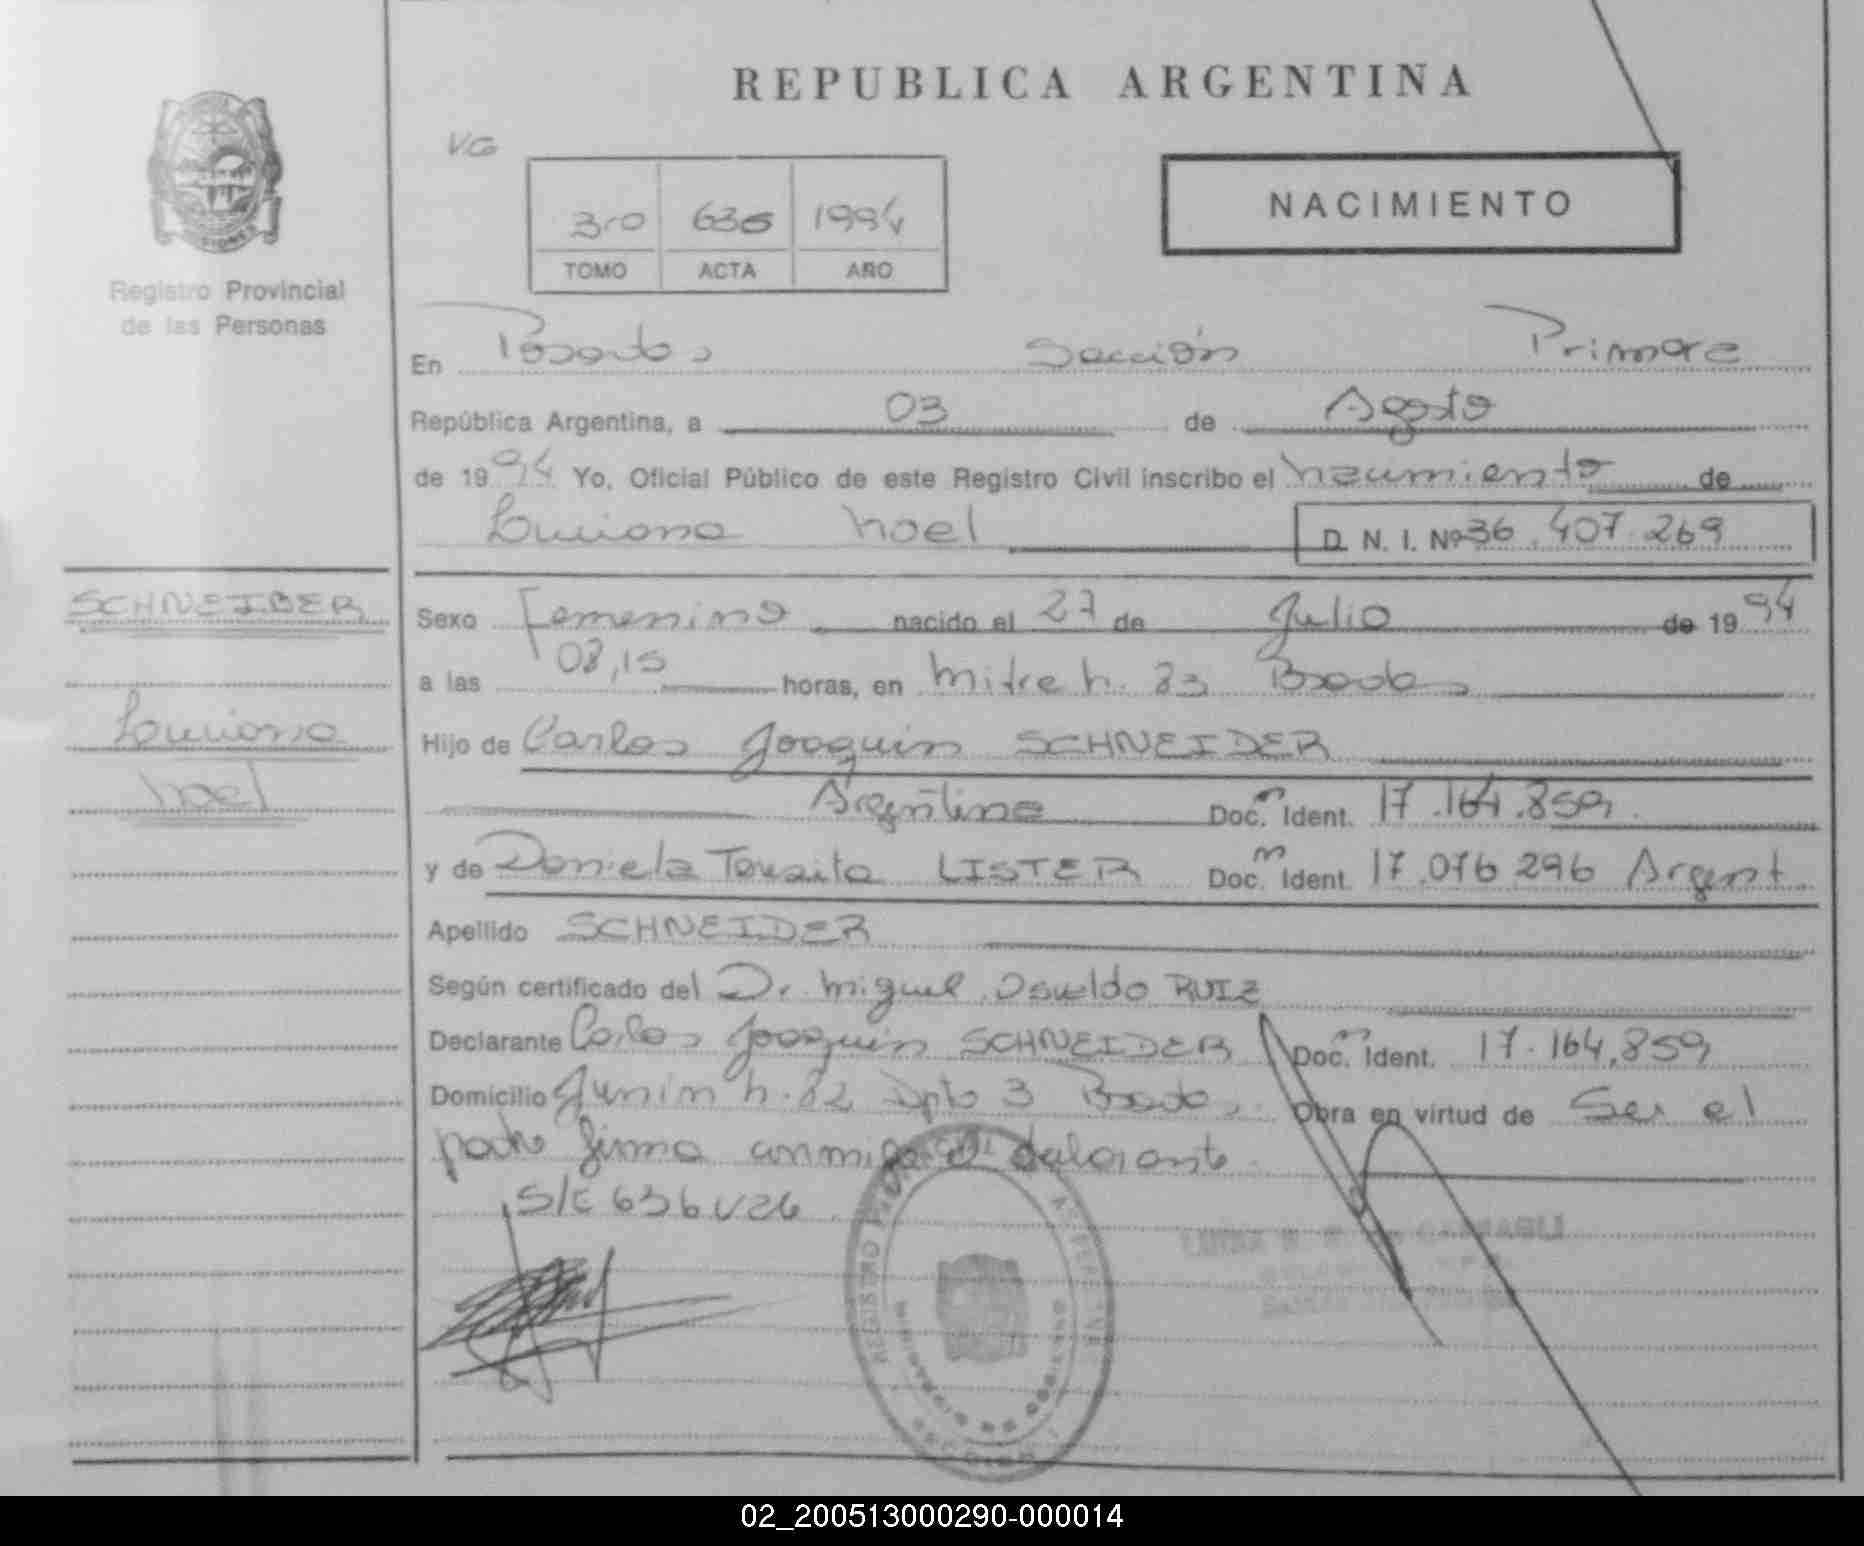 REPUBLICA ARGENTINA
VG
NACIMIENTO
3ro 636 1994
TOMO ACTA AÑO
MISIONES
Registro Provincial
de las Personas
En Posadas Sección Primera
República Argentina, a 03 de Agosto
de 1994 Yo, Oficial Público de este Registro Civil inscribo el nacimiento de
Luciana Noel D. N. I. Nº 36.407.269
SCHNEIDER
Luciana
Noel
Sexo Femenino nacido el 27 de Julio de 1994
a las 08,15 horas, en Mitre n. 83 Posadas
Hijo de Carlos Joaquin SCHNEIDER
Argentina Doc. Ident. 17.164.859
y de Daniela Teresita LISTER Doc. Ident. 17.076.296 Argent
Apellido SCHNEIDER
Según certificado del Dr. Miguel Osvaldo RUIZ
Declarante Carlos Joaquin SCHNEIDER Doc. Ident. 17.164.859
Domicilio Junin n. 82 Dpto 3 Posadas Obra en virtud de Ser el
padre firma conmigo el declarante
S/E 636
REGISTRO PROVINCIAL DE LAS PERSONAS
MINISTERIO DE GOBIERNO
02_200513000290-000014